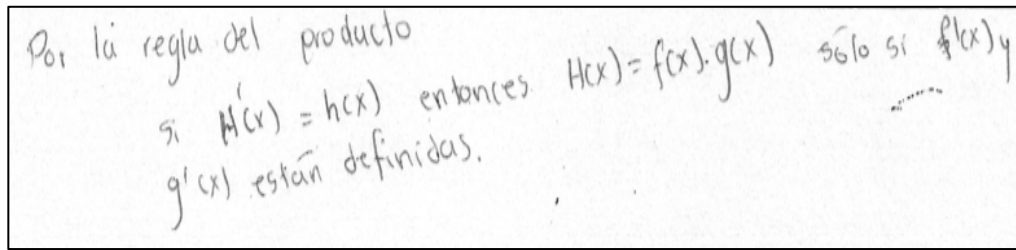 Por la regla del producto
si H'(x) = h(x) entonces H(x) = f(x).g(x) sólo si f'(x) y
g'(x) están definidas.